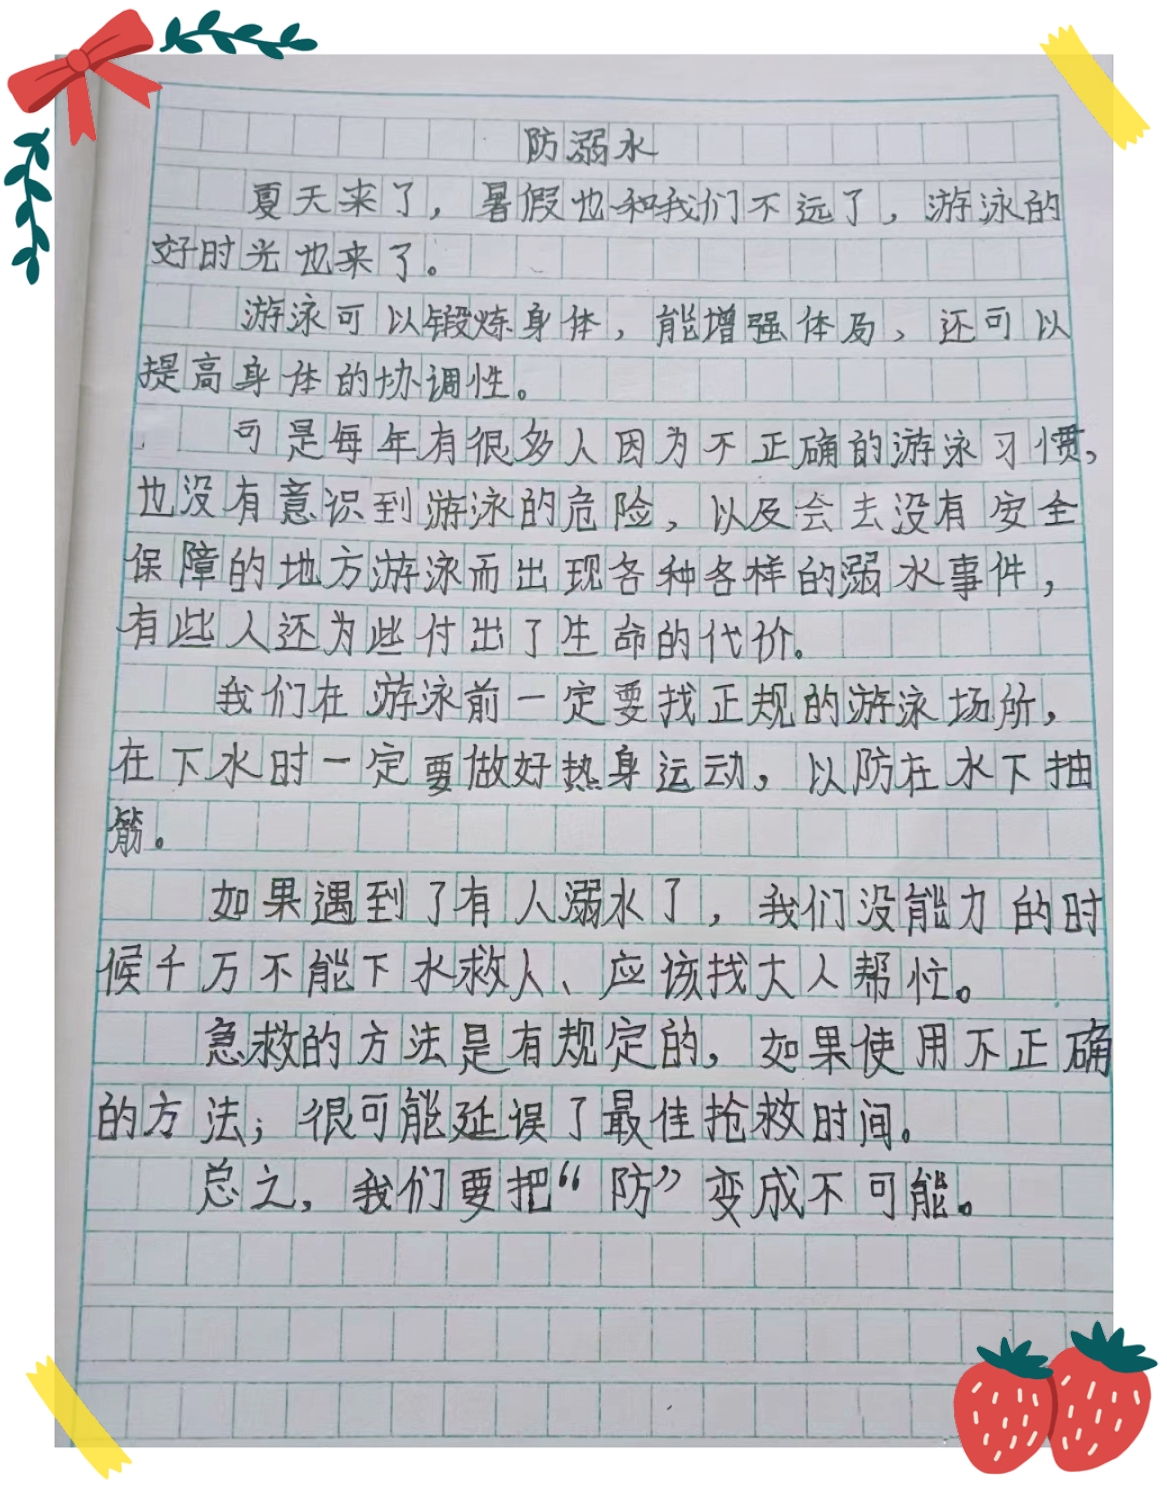 防溺水
夏天来了，暑假也和我们不远了，游泳的
好时光也来了。
游泳可以锻炼身体，能增强体局，还可以
提高身体的协调性。
可是每年有很多人因为不正确的游泳习惯，
也没有意识到游泳的危险，以及会去没有安全
保障的地方游泳而出现各种各样的溺水事件，
有些人还为些付出了生命的代价。
我们在游泳前一定要找正规的游泳场所，
在下水时一定要做好热身运动，以防在水下抽
筋。
如果遇到了有人溺水了，我们没能力的时
候千万不能下水救人、应该找大人帮忙。
急救的方法是有规定的，如果使用不正确
的方法；很可能延误了最佳抢救时间。
总之，我们要把“防”变成不可能。